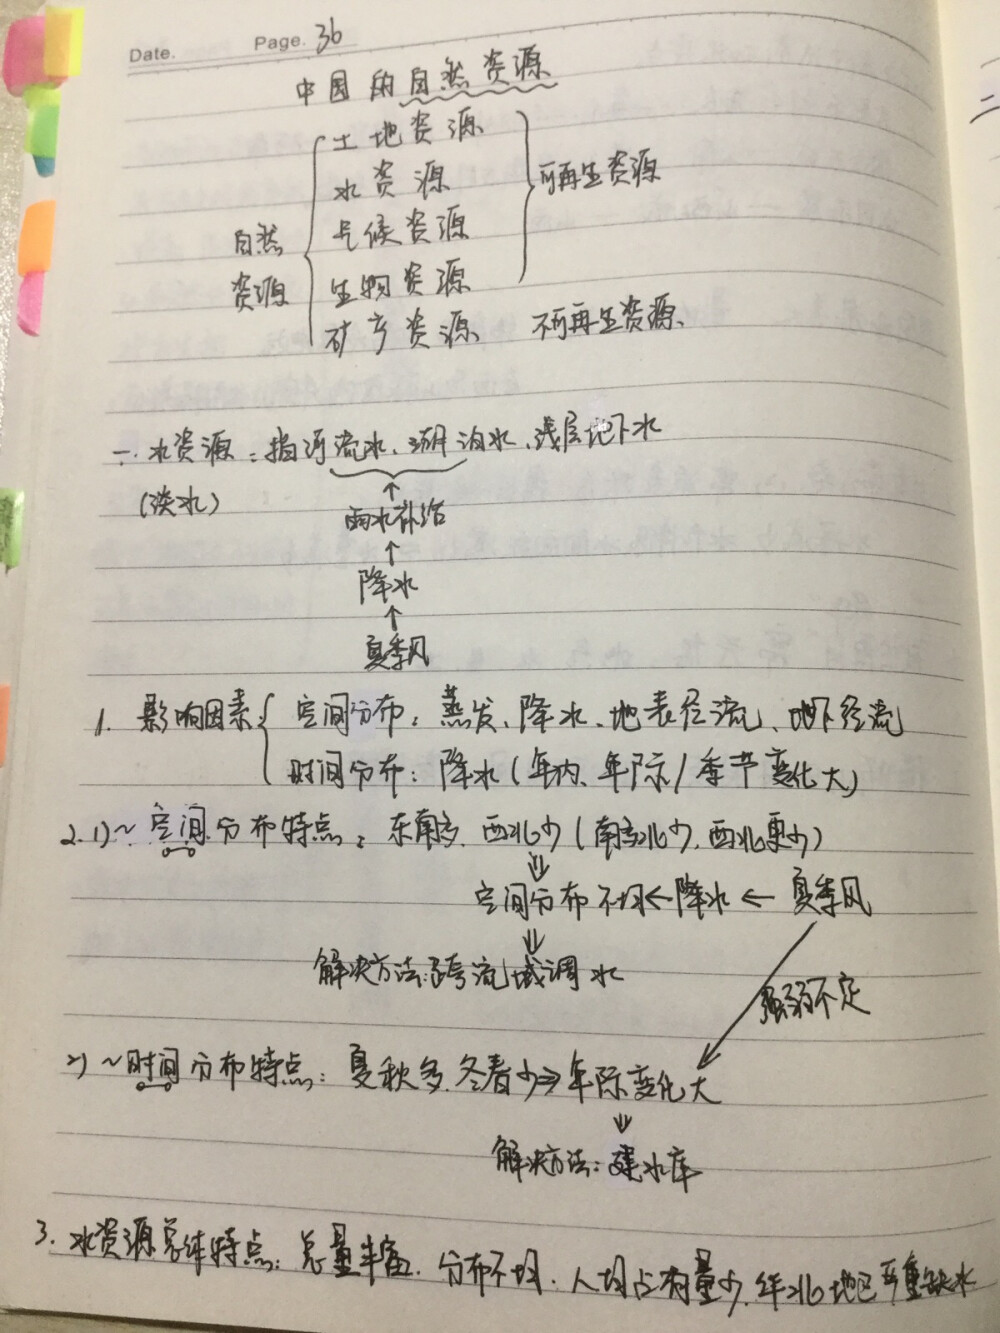 Date. Page. 36
中国的自然资源
土地资源
水资源
气候资源
生物资源
可再生资源
自然
资源
矿产资源 不可再生资源
一. 水资源:指河流水、湖泊水、浅层地下水
(淡水)
↑
雨水补给
↑
降水
↑
夏季风
1. 影响因素 空间分布:蒸发、降水、地表径流、地下径流
时间分布:降水(年内、年际/季节变化大)
2. 1)~空间分布特点:东南多,西北少(南多北少,西北更少)
⇓
空间分布不均←降水←夏季风
⇓
解决方法:跨流域调水
强弱不定
2)~时间分布特点:夏秋多,冬春少⇒年际变化大
⇓
解决方法:建水库
3. 水资源总体特点:总量丰富.分布不均.人均占有量少,华北地区严重缺水